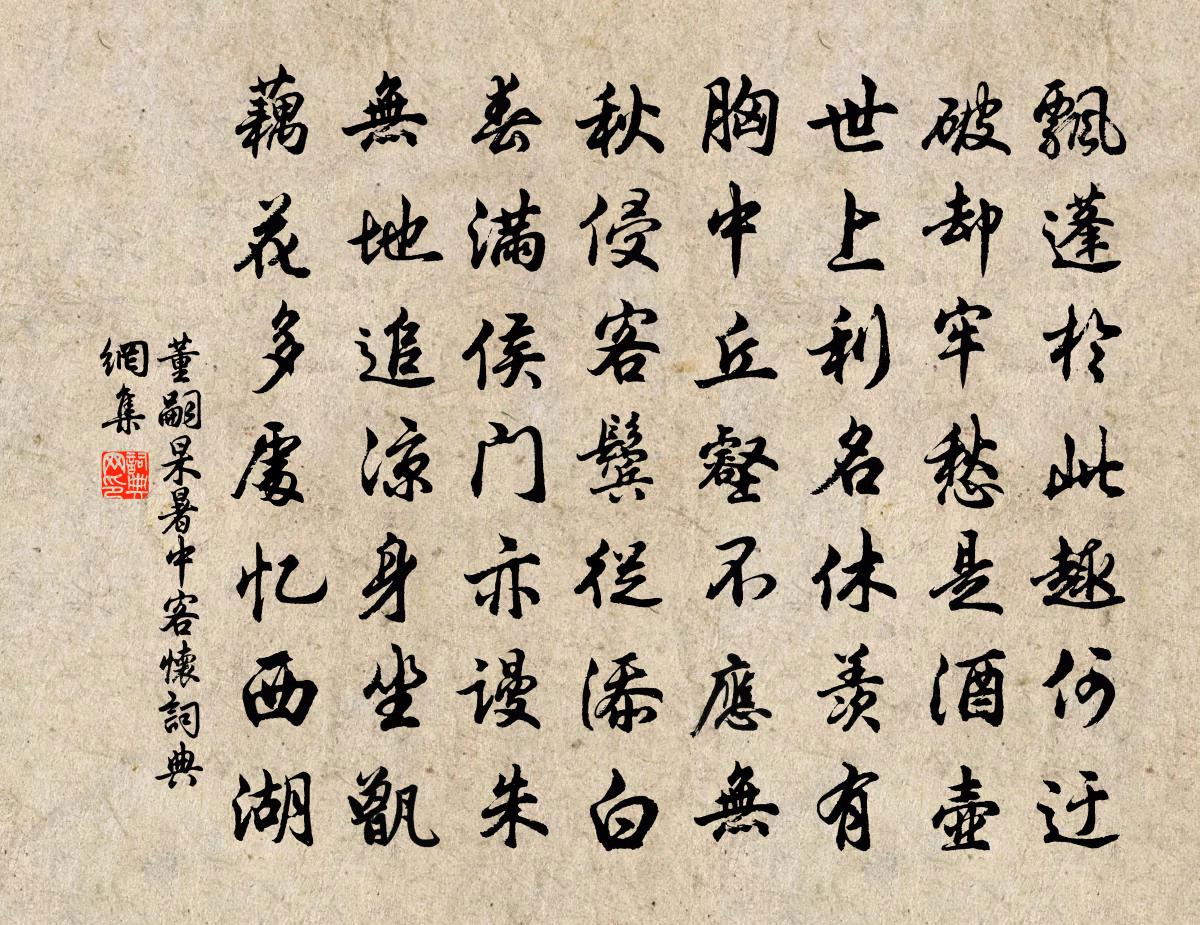 飄蓬於此趣何迂
破却牢愁是酒壺
世上利名休羨有
胸中丘壑不應無
秋侵客鬢從添白
春滿侯門亦謾朱
無地追涼身坐甑
藕花多處憶西湖
董嗣杲暑中客懷詞典
網集
詞典網印